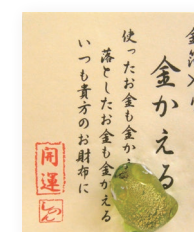 金かえる
使ったお金も金か
落としたお金も金かえる
いつも貴方のお財布に
開運